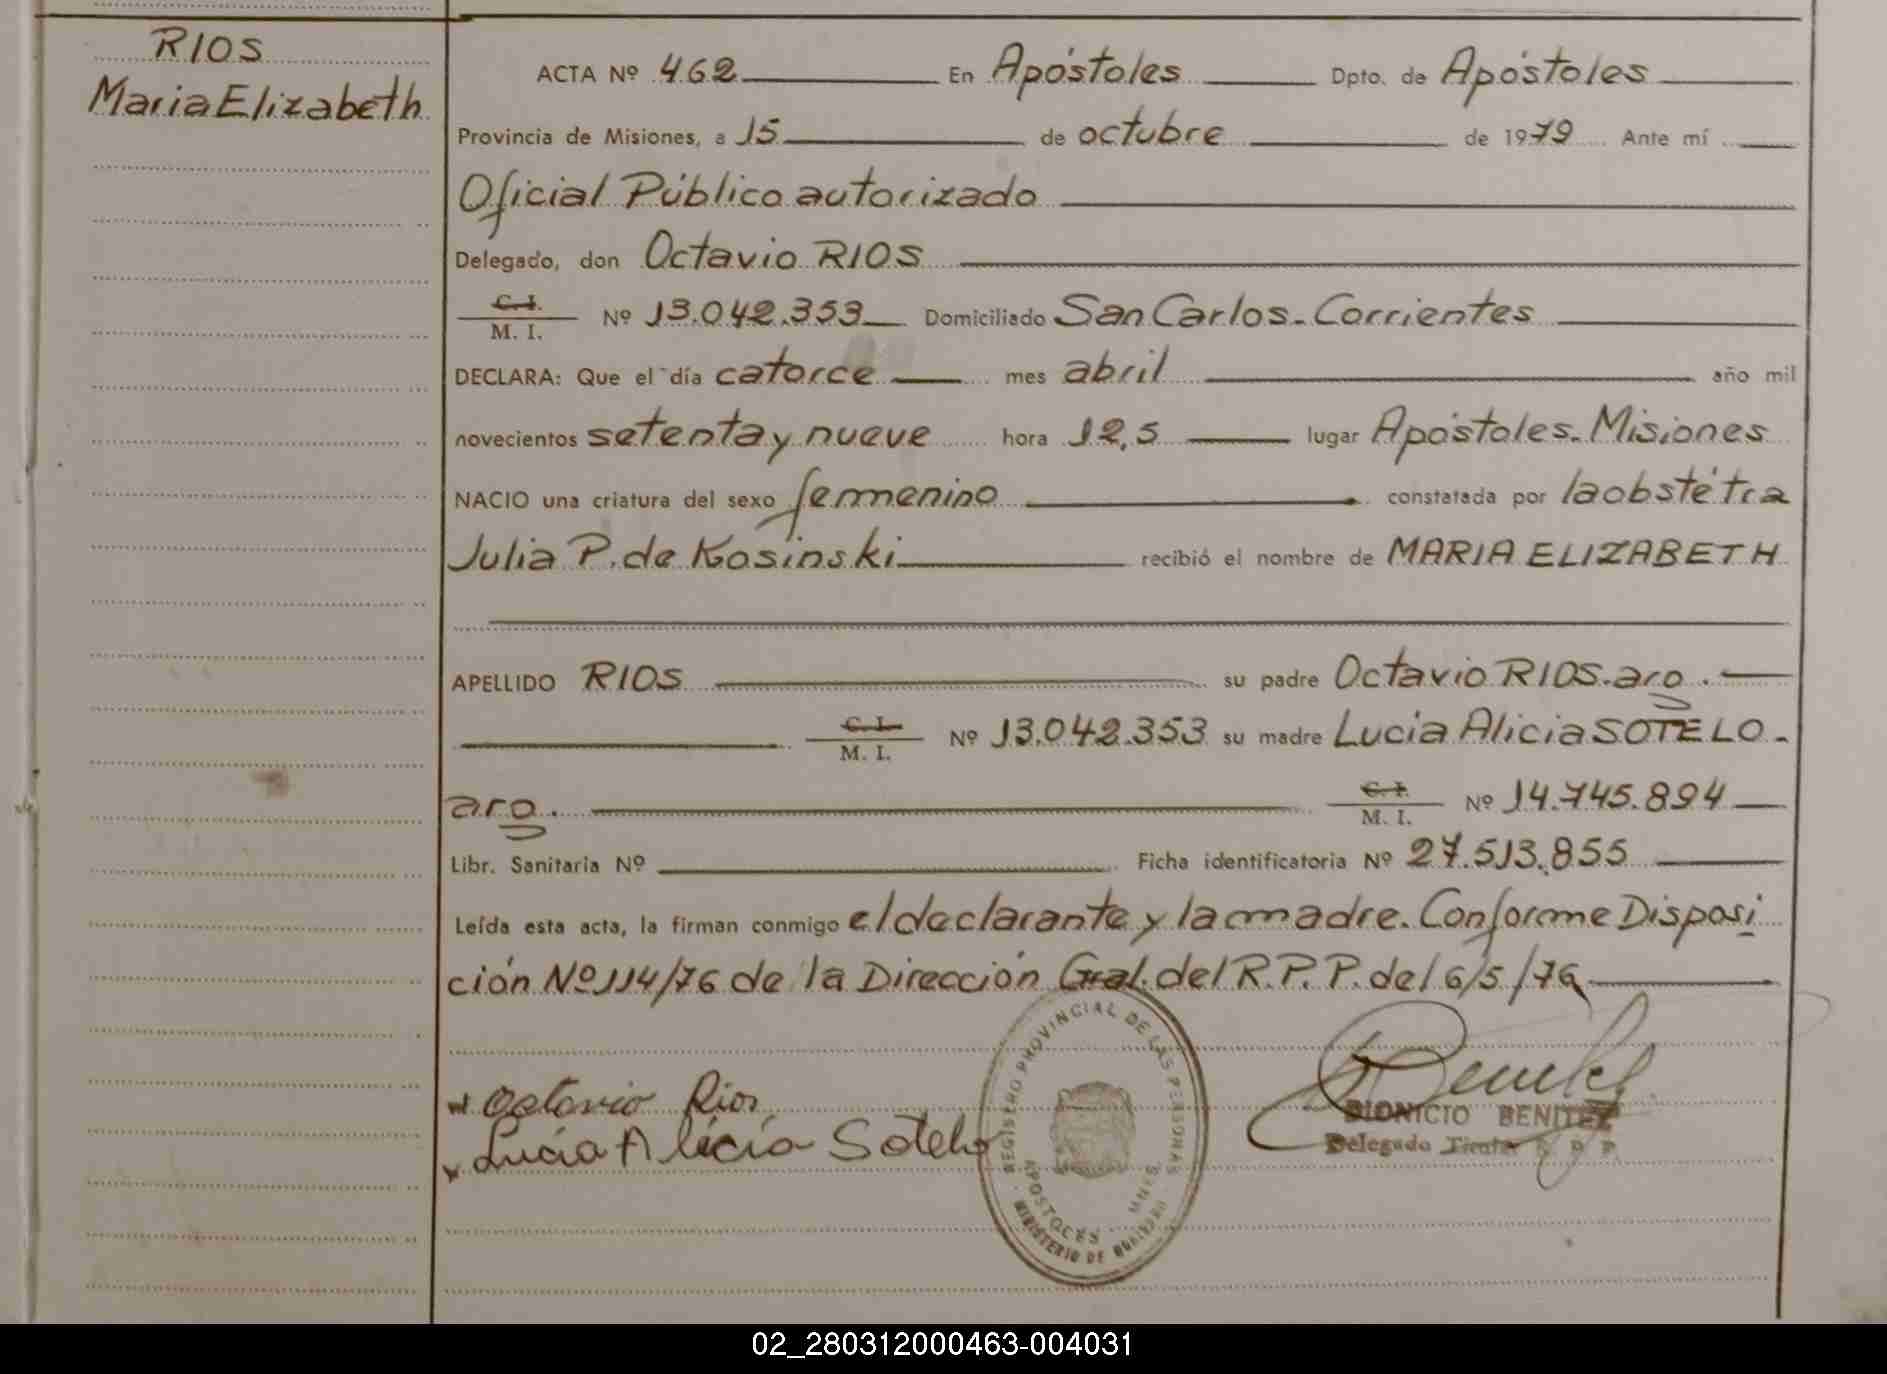 RIOS
Maria Elizabeth
ACTA Nº 462 En Apóstoles Dpto. de Apóstoles
Provincia de Misiones, a 15 de octubre de 1979 Ante mí
Oficial Público autorizado
Delegado, don Octavio RIOS
C. I.
M. I. Nº 13.042.353 Domiciliado San Carlos - Corrientes
DECLARA: Que el día catorce mes abril año mil
novecientos setenta y nueve hora 12,5 lugar Apóstoles - Misiones
NACIO una criatura del sexo femenino constatada por la obstétra
Julia P. de Kosinski recibió el nombre de MARIA ELIZABETH
APELLIDO RIOS su padre Octavio RIOS. aro.
C. I.
M. I. Nº 13.042.353 su madre Lucia Alicia SOTELO -
aro. C. I.
M. I. Nº 14.745.894
Libr. Sanitaria Nº Ficha identificatoria Nº 27.513.855
Leída esta acta, la firman conmigo el declarante y la madre. Conforme Disposi
ción Nº 114/76 de la Dirección Gral. del R.P.P. del 6/5/76
REGISTRO PROVINCIAL DE LAS PERSONAS
APOSTOLES MNES.
MINISTERIO DE GOBIERNO
Octavio Rios
Lucía Alicia Sotelo
DIONICIO BENITEZ
Delegado Titular R. P. P.
02_280312000463-004031